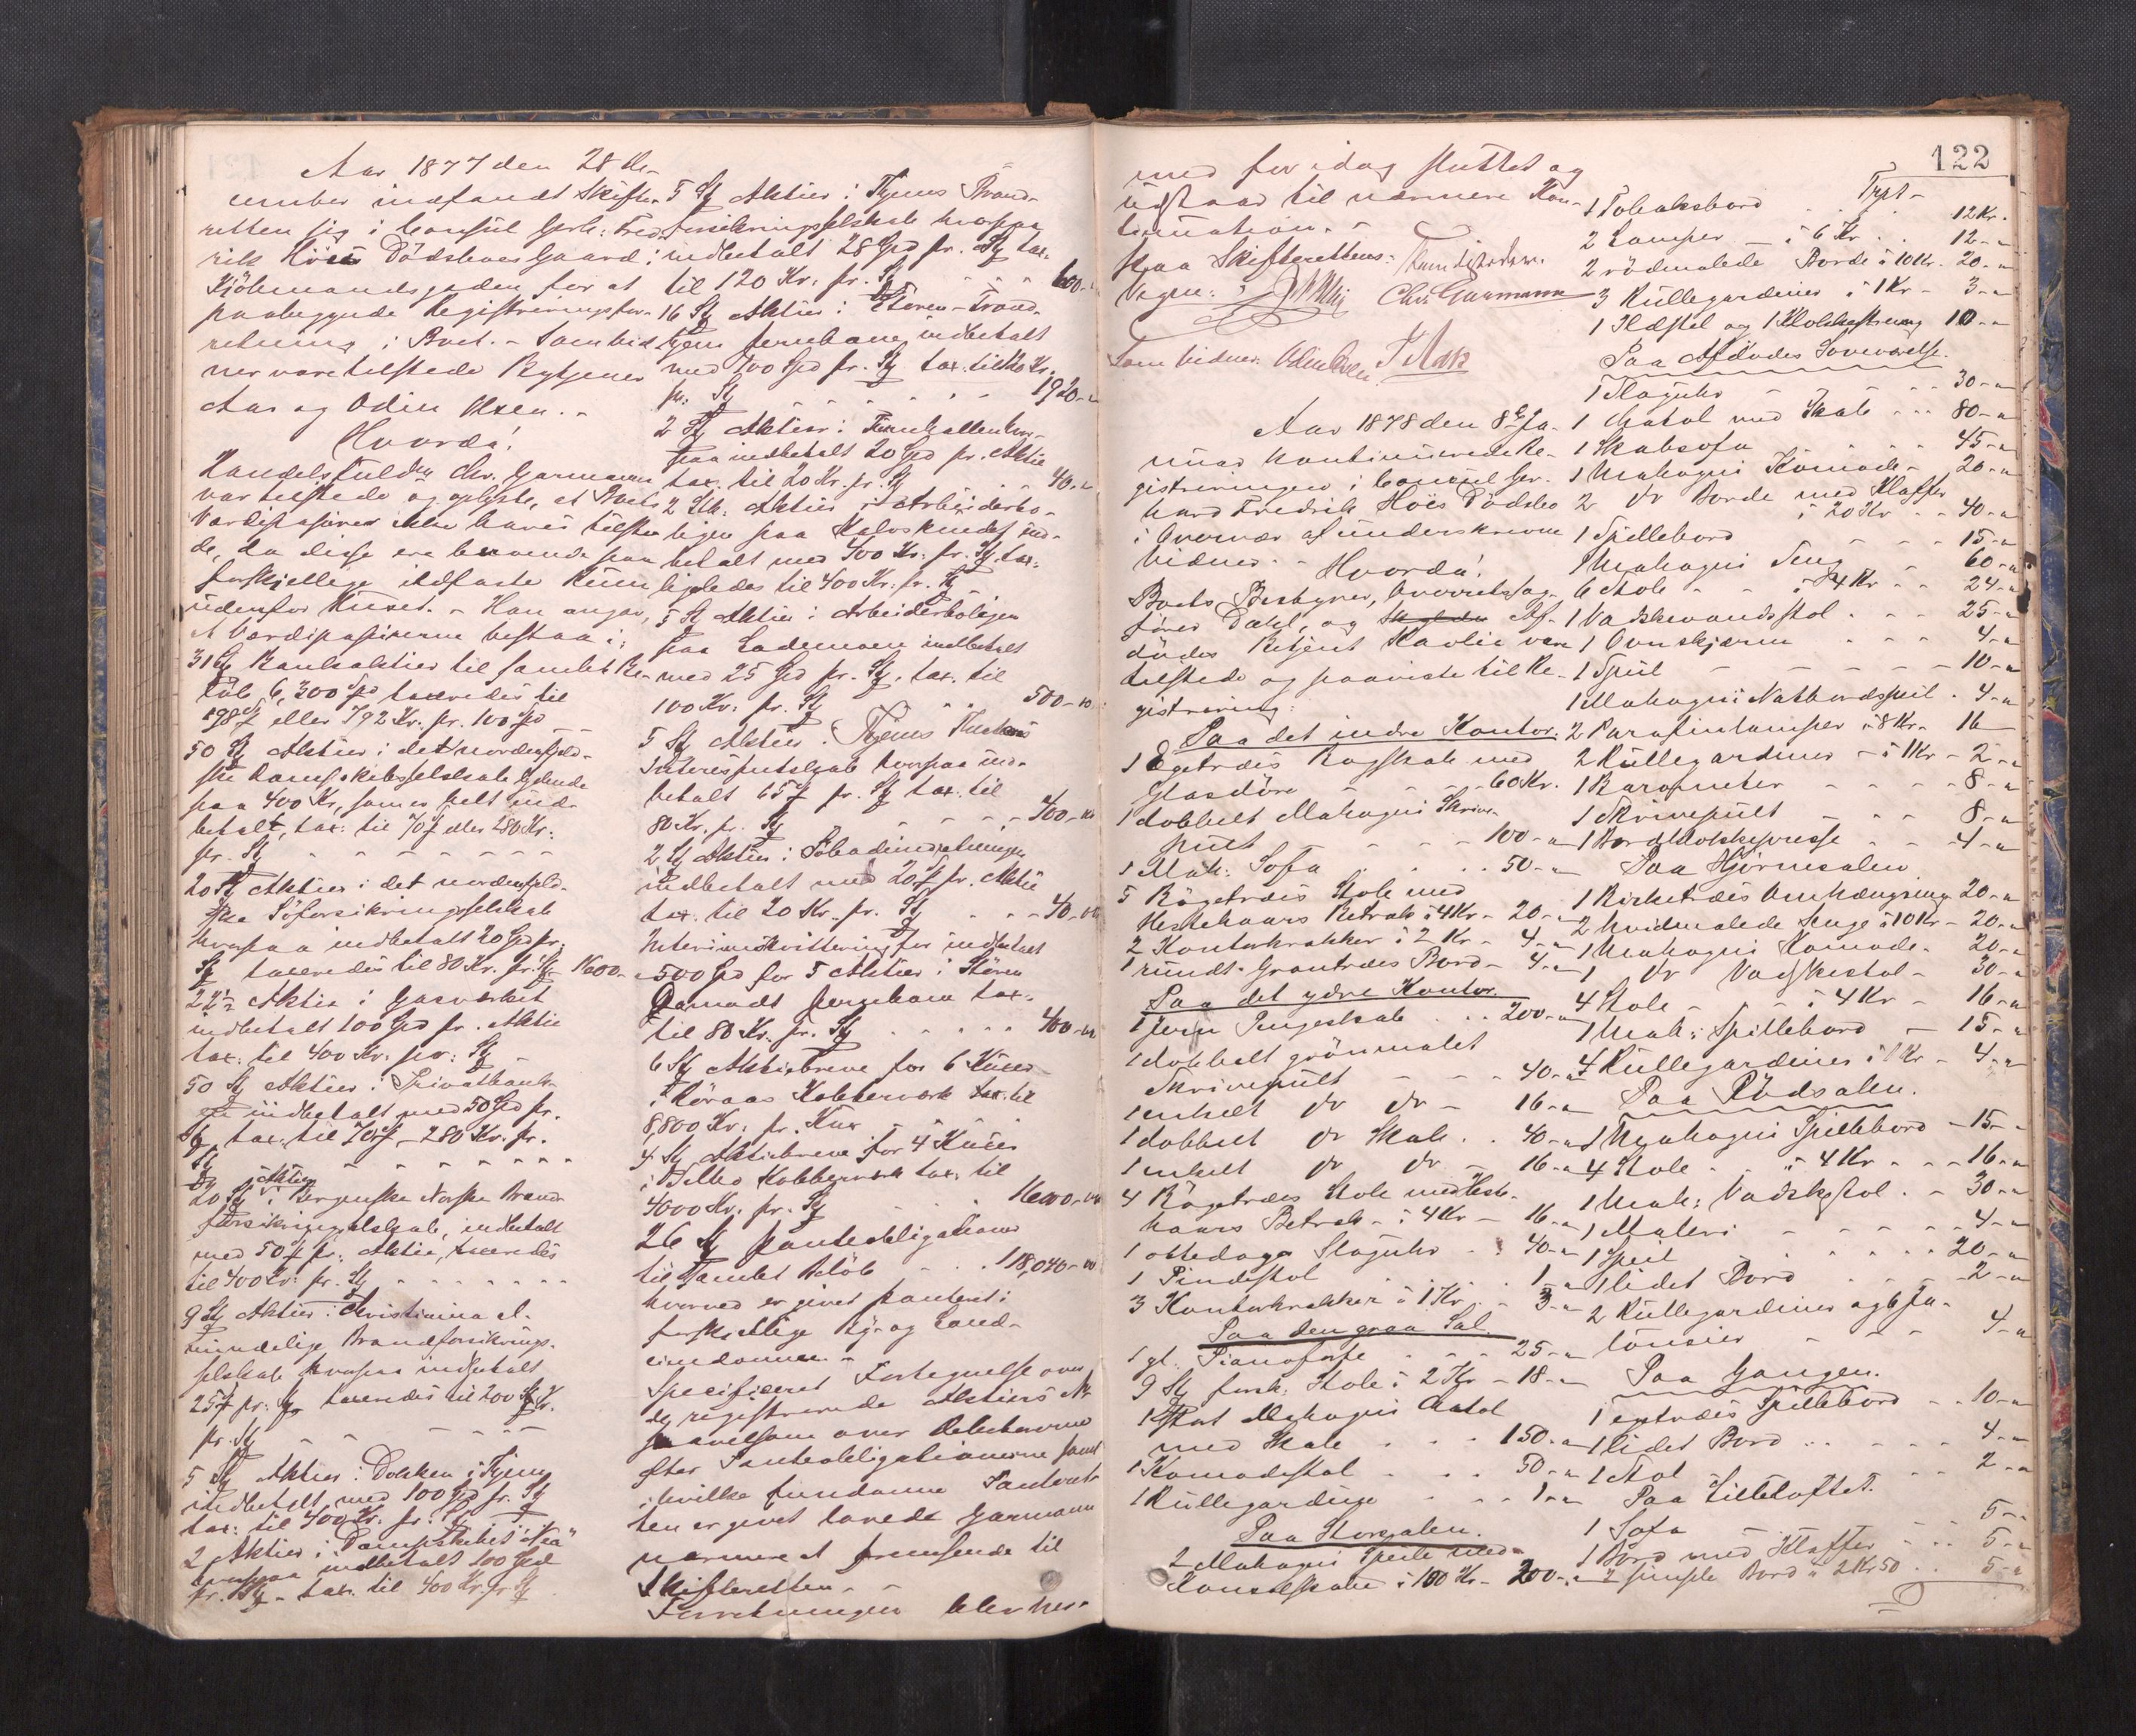 Aar 1877 den 28 de-
cember indfandt Skifte-
retten sig i Consul Gerh: Fred-
rik Höes Dödsboes Gaard i
Kjöbmandsgaden for at
paabegynde Registreringsfor-
retning i Boet. - Som Vid
ner vare tilstede Bytjener
Aas og Odin Olsen. -
Hvorda!
Handelsfuldm Chr. Garmann
var tilstede og oplyste, at Boets
Værdipapirer ikke haves tilste
de, da disse ere beroende paa
forskjellige ildfaste Rum
udenfor Huset. - Han angav,
at Værdipapirerne bestaa i:
31 St Bankaktier til samlet Be-
löb 6,300 Spd taxeredes til
198 % eller 792 Kr. pr. 100 Spd
50 St Aktier i det nordenfjeld-
ske Dampskibsselskab lydende
paa 400 Kr, som er helt ind-
betalt, tax: til 70 % eller 280 Kr:
pr. St - - - - - - -
20 St Aktier i det nordenfjeld-
ske Söforsikringsselskab
hvorpaa indbetalt 20 Spd pr.
St taxeredes til 80 Kr. pr. St - 1600 -
22½ Aktie i Gasværket
indbetalt 100 Spd pr. Aktie
tax: til 400 Kr. pr: St -
50 St Aktier i Privatbank-
en indbetalt med 50 Spd pr.
St, tax. til 70 % - 280 Kr. pr.
St - - - - - - -
20 St Aktier i Bergenske Norske Brand
forsikringsselskab, indbetalt
med 50 % pr: Aktie, taxeredes
til 400 Kr: pr. St - - - - - -
9 St Aktier i Christiania al-
mindelige Brandforsikrings-
selskab hvorpaa indbetalt
25 % pr: St taxeredes til 200 Kr.
pr. St - - - - - -
5 St Aktier i Dokken i Thjem
indbetalt med 100 Spd pr. St
tax: til 400 Kr. pr. St
2 Aktier i Dampskibet "Nea"
hvorpaa indbetalt 100 Spd
pr. St - tax. til 400 Kr. pr St
5 St Aktier i Thjems Brand-
forsikringsselskab hvorpaa
indbetalt 28 Spd pr. St tax.
til 120 Kr. pr. St - - - 600 -
16 St Aktier i Stören-Trond-
hjem Jernbane indbetalt
med 100 Spd pr. St tax. til 120 Kr.
pr: St - - - - - - 1920 -
2 St Aktier i
paa indbetalt 20 Spd pr. Aktie
tax. til 20 Kr. pr. St . . . 40 -
2 Stk. Aktier i Arbeiderbo-
ligen paa Kalvskindet ind-
betalt med 400 Kr. pr. St, tax.
ligeledes til 400 Kr. pr. St
5 St Aktier i Arbeiderboligen
paa Lademoen indbetalt
med 25 Spd pr. St, tax. til
100 Kr. pr. St . . 500 -
5 St Aktier i Thjems
Interessentskab hvorpaa ind-
betalt 65 % pr. St tax. til
80 Kr. pr. St - - - - 400 -
2 St Aktier i Söbadindretningen
indbetalt med 20 Spd pr. Aktie
tax. til 20 Kr. pr. St . . - 40 -
Interimskvittering for indbetalt
500 Spd for 5 Aktier i Stören
Aamodt Jernbane tax.
til 80 Kr. pr. St - - - - - 400 -
6 St Aktiebreve for 6 Kuxer
i Röraas Kobberværk tax. til
8,800 Kr: pr. Kux
4 St Aktiebreve for 4 Kuxer
i Selbo Kobberværk tax. til
4000 Kr. pr. St - . 16000 -
26 St Panteobligationer
til samlet Belöb - . . 118,040 -
hvorved er givet Panteret i
forskjellige By- og Land-
eiendomme -
Specificeret Fortegnelse over
de registrerede Aktiers No
saavelsom over Debitorerne
efter Panteobligationerne samt
i hvilke Eiendomme Panteret-
ten er givet lovede Garmann
nærmere at fremsende til
Skifteretten. -
Forretningen blev her-
122
med for idag sluttet og
udsat til nærmere Kon-
tinuation. -
Paa Skifterettens:
Vegne:
Chr. Garmann
Som Vidner: Odin Olsen. T Aas
Aar 1878 den 8de Ja-
nuar kontinueredes Re-
gistreringen i Consul Ger-
hard Fredrik Höes Dödsbo
i Overvær af underskrevne
Vidner. - Hvorda!
Boets Bestyrer, Overretssag-
förer Dahl, og Af-
dödes Betjent Havlin vare
tilstede og paaviste til Re-
gistrering:
Paa det indre Kontor.
1 Egetræes Bogskab med
Glasdöre - - - - 60 Kr.
1 dobbelt Mahogni Skrive-
pult - - - 100 - "
1 Mah: Sofa . . . . 50 - "
5 Bögetræes Stole med
Hestehaars Betræk à 4 Kr - 20 - "
2 Kontorkrakker à 2 Kr - 4 - "
1 rundt Grantræes Bord - 4 - "
Paa det ydre Kontor.
1 Jern Pengeskab . . . 200 - "
1 dobbelt grönmalet
Skrivepult - - - 40 - "
1 enkelt do do - 16 - "
1 dobbelt do Skab . . 40 - "
1 enkelt do do - 16 - "
4 Bögetræes Stole med Heste-
haars Betræk - à 4 Kr - 16 - "
1 ottedages Slaguhr - . 40 - "
1 Pindestol . . . . 1 - "
3 Kontorkrakker à 1 Kr . - 3 - "
Paa den graa Sal.
1 gl. Pianoforte . . . . 25 - "
9 St forsk. Stole à 2 Kr - 18 - "
1 stort Mahogni Chatol
med Skab . . . . 150 - "
1 Komodestol . . . . 50 - "
1 Rullegardine - - - 1 - "
Paa Storsalen.
2 Mahogni Speile med
Konsolskabe à 100 Kr - 200 - "
Trpt -
1 Tobaksbord . . . . 12 Kr.
2 Lamper - à 6 Kr . . 12 - "
2 rödmalede Borde à 10 Kr. 20 - "
3 Rullegardiner à 1 Kr - 3 - "
1 Klædstol og 1 Klokkestreng 10 - "
Paa Afdödes Soveværelse.
1 Slaguhr - - - - - 30 - "
1 Chatol med Skab - - - 80 - "
1 Skabsofa - - - - 45 - "
1 Mahogni Komode - 20 - "
2 do Borde med Klaffer
à 20 Kr - - 40 - "
1 Spillebord - - - 15 - "
1 Mahogni Seng - - 60 - "
6 Stole - - à 4 Kr - - 24 - "
1 Vadskevandsstol . . . 25 - "
1 Ovnskjærm . . . . 4 - "
1 Speil - - - - - 10 - "
1 Mahogni Natbordspeil . 4 - "
2 Parafinlamper à 8 Kr. 16
2 Rullegardiner - à 1 Kr - 2 - "
1 Barometer - - - - 8 - "
1 Skrivepult - - - 8 - "
1 Bordklokkepresse - - 4 - "
Paa Hjörnesalen
1 Birketræes Omhængseng 20 - "
2 hvidmalede Senge à 10 Kr - 20 - "
1 Mahogni Komode - 20 - "
1 do Vadskestol - 30 - "
4 Stole - - - à 4 Kr - 16 - "
1 Mah: Spillebord - 15 - "
4 Rullegardiner à 1 Kr - 4 - "
Paa Rödsalen.
1 Mahogni Spillebord - 15 - "
4 Stole - - à 4 Kr - - 16 - "
1 Mah: Vadskestol . - 30 - "
1 Maleri - - - - - 4 - "
1 Speil . . . . . . 20 - "
1 lidet Bord . . . . 2 - "
2 Rullegardiner og 6 Ja-
lousier - - - 4 - "
Paa Gangen.
1 egetræes Spillebord - . 10 - "
1 lidet Bord . . - - - 4 - "
1 Stol - - - - . . 2 - "
Paa Lilleloftet.
1 Sofa - - - - - 5 - "
1 Bord med Klaffer - . . 5 - "
2 simple Bord à 2 Kr 50 . . 5 - "